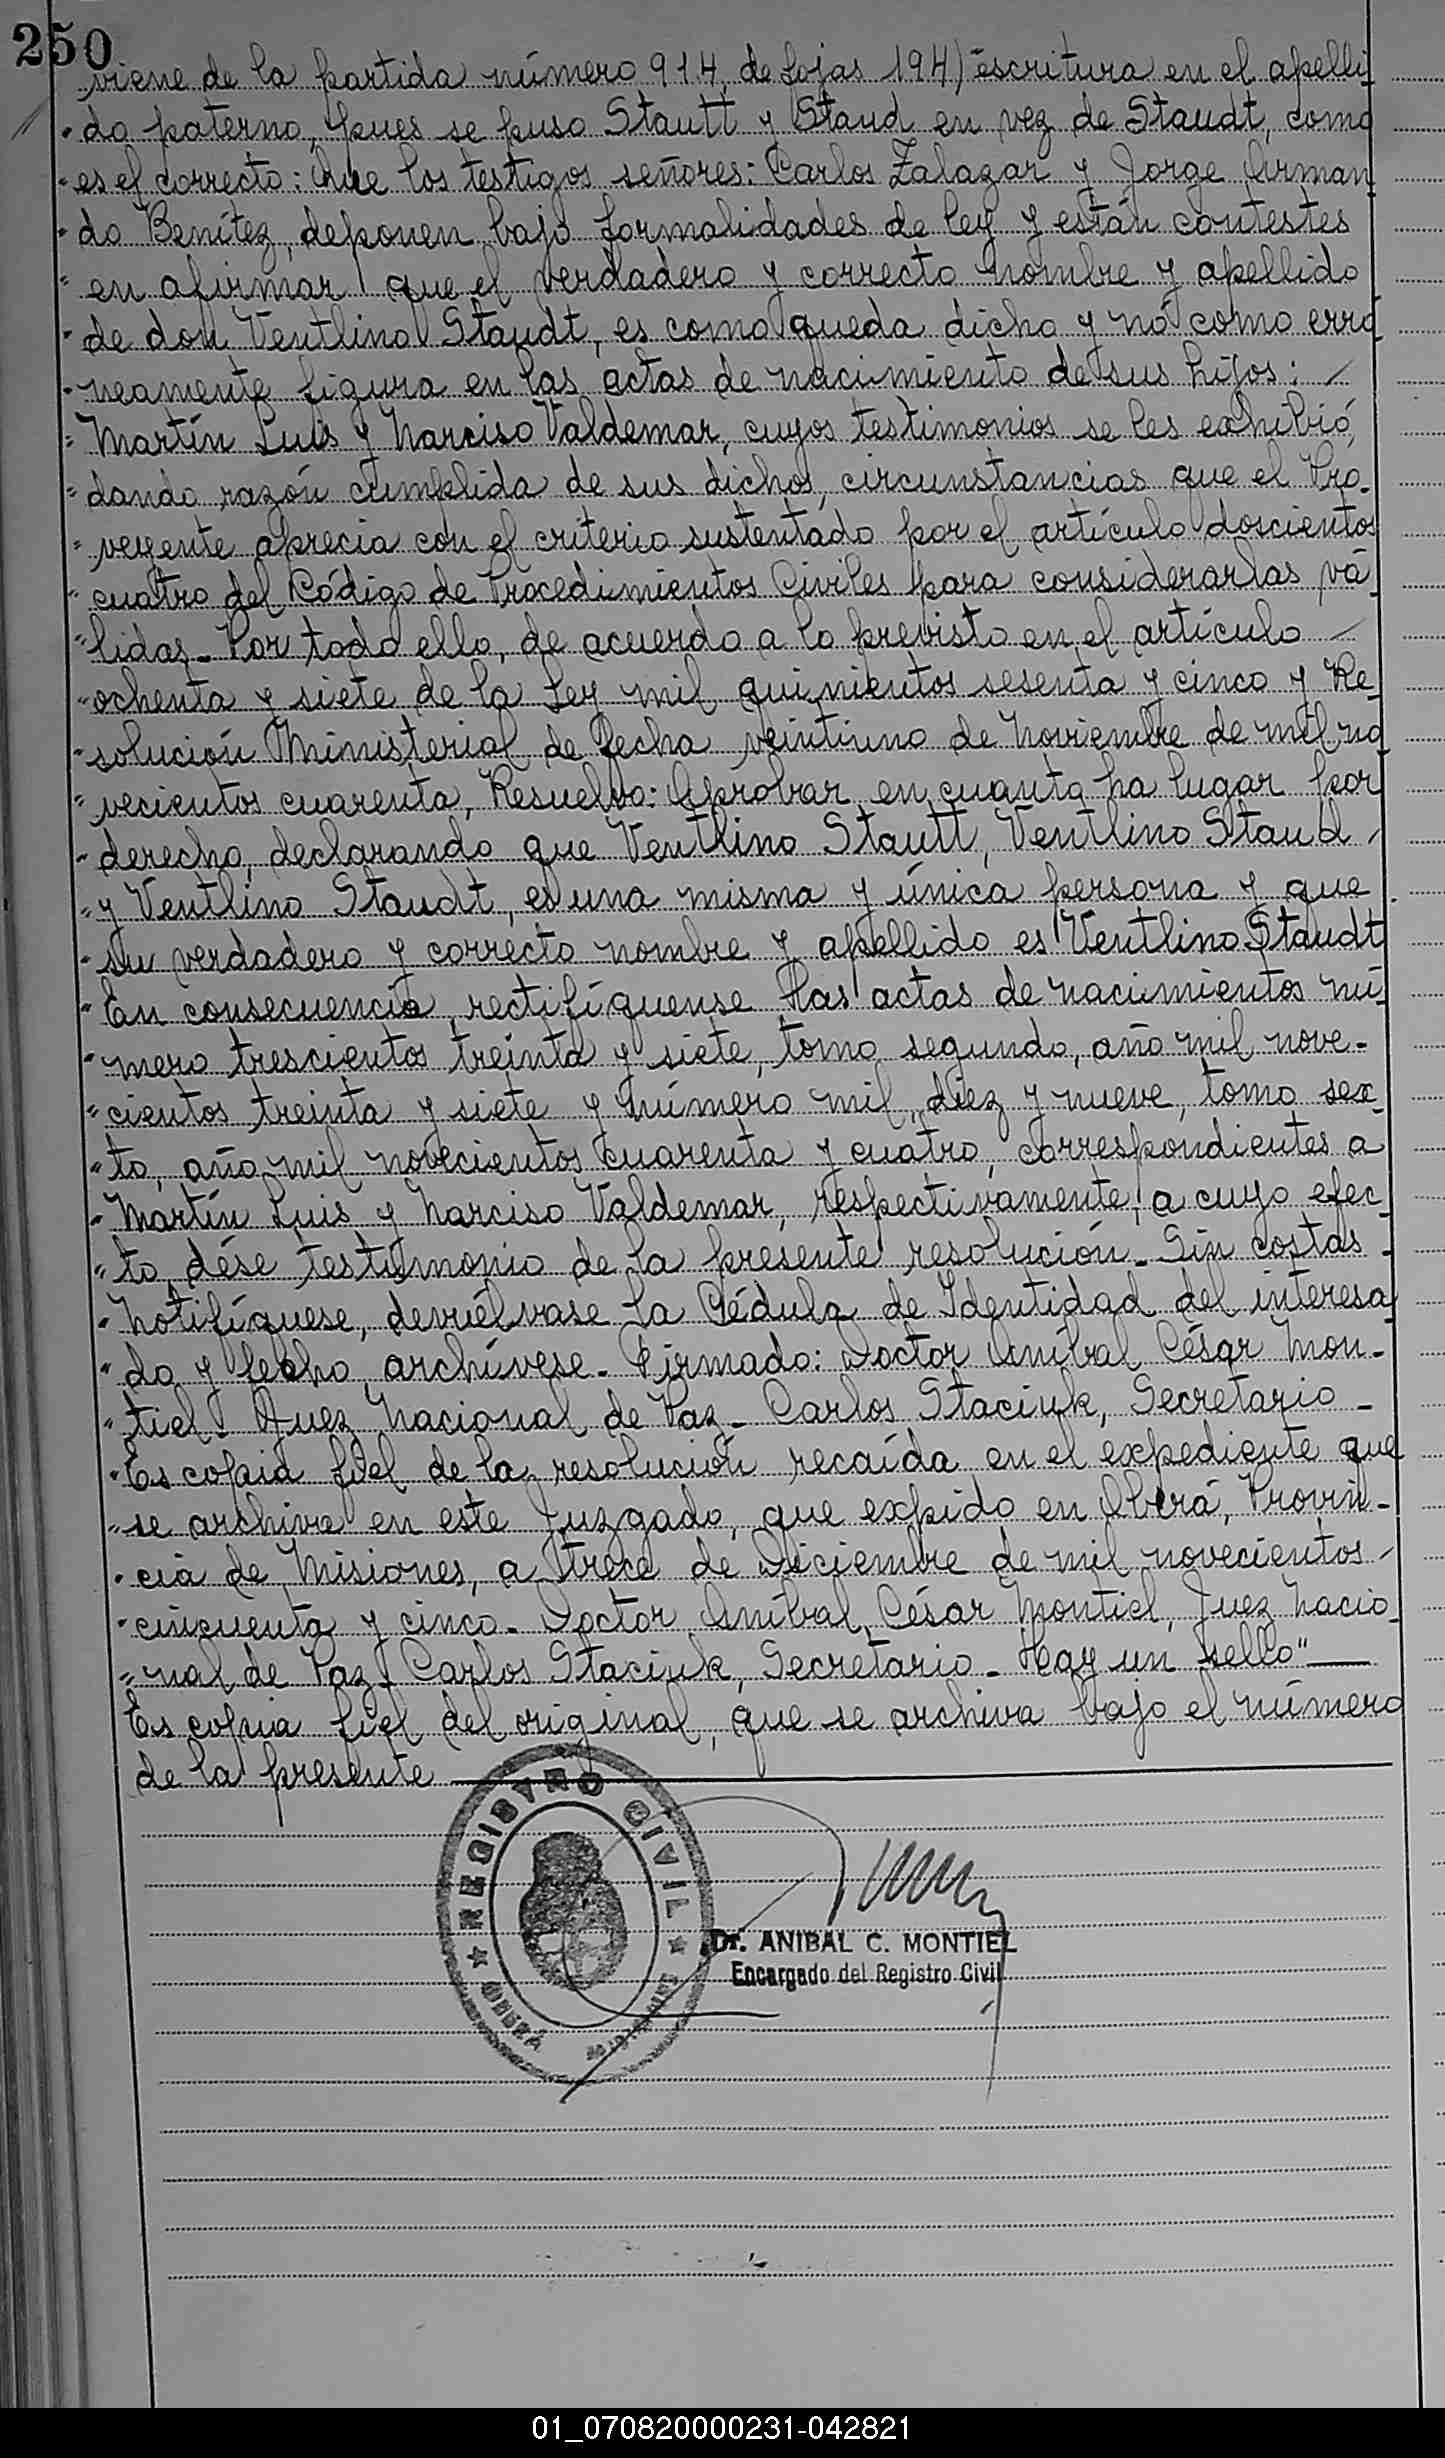 250
viene de la partida número 914, de fojas 194) "escritura en el apelli
" do paterno, pues se puso Stautt y Staud en vez de Staudt, como
" es el correcto: Que los testigos señores: Carlos Zalazar y Jorge Arman
" do Benítez, deponen bajo formalidades de ley y están contestes
" en afirmar que el verdadero y correcto nombre y apellido
" de don Ventlino Staudt, es como queda dicho y no como erró
" neamente figura en las actas de nacimiento de sus hijos: /
" Martín Luis y Narciso Valdemar, cuyos testimonios se les exhibió,
" dando razón cumplida de sus dichos, circunstancias que el Pro-
" veyente aprecia con el criterio sustentado por el artículo doscientos
" cuatro del Código de Procedimientos Civiles para considerarlas vá
" lidas_ Por todo ello, de acuerdo a lo previsto en el artículo /
" ochenta y siete de la Ley mil quinientos sesenta y cinco y Re_
" solución Ministerial de fecha veintiuno de Noviembre de mil no
" vecientos cuarenta, Resuelvo: Aprobar en cuanto ha lugar por
" derecho, declarando que Ventlino Stautt, Ventlino Staud /
" y Ventlino Staudt, es una misma y única persona y que
" su verdadero y correcto nombre y apellido es Ventlino Staudt
" En consecuencia, rectifíquense las actas de nacimientos nú_
" mero trescientos treinta y siete, tomo segundo, año mil nove-
" cientos treinta y siete y número mil diez y nueve, tomo sex_
" to, año mil novecientos cuarenta y cuatro, correspondientes a
" Martín Luis y Narciso Valdemar, respectivamente, a cuyo efec_
" to, dése testimonio de la presente resolución_ Sin costas_
" Notifíquese, devuélvase la Cédula de Identidad del interesa
" do y fecho archívese_ Firmado: Doctor Aníbal César Mon-
" tiel Juez Nacional de Paz_ Carlos Staciuk, Secretario_
" Es copia fiel de la resolución recaída en el expediente que
" se archiva en este Juzgado, que expido en Oberá, Provin-
" cia de Misiones, a trece de Diciembre de mil novecientos /
" cincuenta y cinco_ Doctor Aníbal César Montiel, Juez Nacio_
" nal de Paz_ Carlos Staciuk, Secretario_ Hay un sello"
Es copia fiel del original, que se archiva bajo el número
de la presente
REGISTRO CIVIL
OBERÁ MISIONES
Dr. ANIBAL C. MONTIEL
Encargado del Registro Civil
01_070820000231-042821